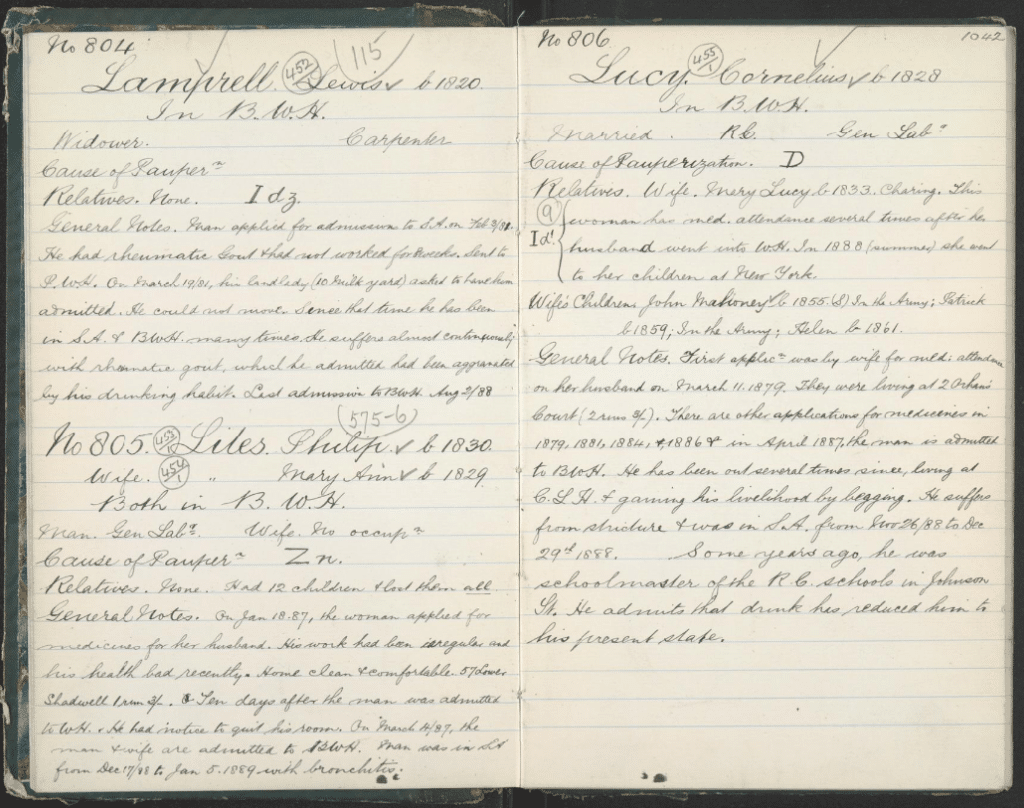 No 804
115
Lamprell. 452/1 Lewis b 1820.
In B.W.H.
Widower. Carpenter
Cause of Pauperⁿ
Relatives. None. I d z.
General Notes. Man applied for admission to S.A. on Feb 3/81.
He had rheumatic Gout & had not worked for weeks. Sent to
P.W.H. On March 19/81, his landlady (10 Milk yard) asked to have him
admitted. He could not move. Since that time he has been
in S.A. & BWH. many times. He suffers almost continuously
with rheumatic gout, which he admitted had been aggravated
by his drinking habit. Last admission to BWH Aug 2/88
(575-6)
No 805. 453/1 Liles. Philip. b 1830.
Wife. 454/1 " Mary Ann b 1829
Both in B.W.H.
Man. Gen Labʳ. Wife. No occupⁿ
Cause of Pauperⁿ Z n.
Relatives. None. Had 12 children & lost them all
General Notes. On Jan 18.87, the woman applied for
medicines for her husband. His work had been irregular and
his health bad recently. Home clean & comfortable. 57 Lower
Shadwell 1 rm 3/-. Ten days after the man was admitted
to WH. He had notice to quit his room. On March 4/87, the
man & wife are admitted to BWH. Man was in SA
from Dec 17/88 to Jan 5. 1889 with bronchitis.
No 806 1042
Lucy. 455/1 Cornelius b 1828
In B.W.H.
Married. R.C. Gen Labʳ
Cause of Pauperization. D
Relatives. Wife. Mary Lucy b 1833. Charing. This
(a) woman has med. attendance several times after her
I d' husband went into WH. In 1888 (summer) she went
to her children at New York.
Wife's Children. John Mahoney b 1855 (S) In the Army; Patrick
b 1859; In the Army; Helen b 1861.
General Notes. First applicⁿ was by wife for med: attendance
on her husband on March 11. 1879. They were living at 2 Orchard
Court (2 rms 3/-). There are other applications for medicines in
1879, 1881, 1884, & 1886 & in April 1887, the man is admitted
to BWH. He has been out several times since, living at
C.L.H. & gaining his livelihood by begging. He suffers
from stricture & was in S.A. from Nov 26/88 to Dec
29ᵈ 1888. Some years ago, he was
schoolmaster of the R.C. schools in Johnson
St. He admits that drink has reduced him to
his present state.